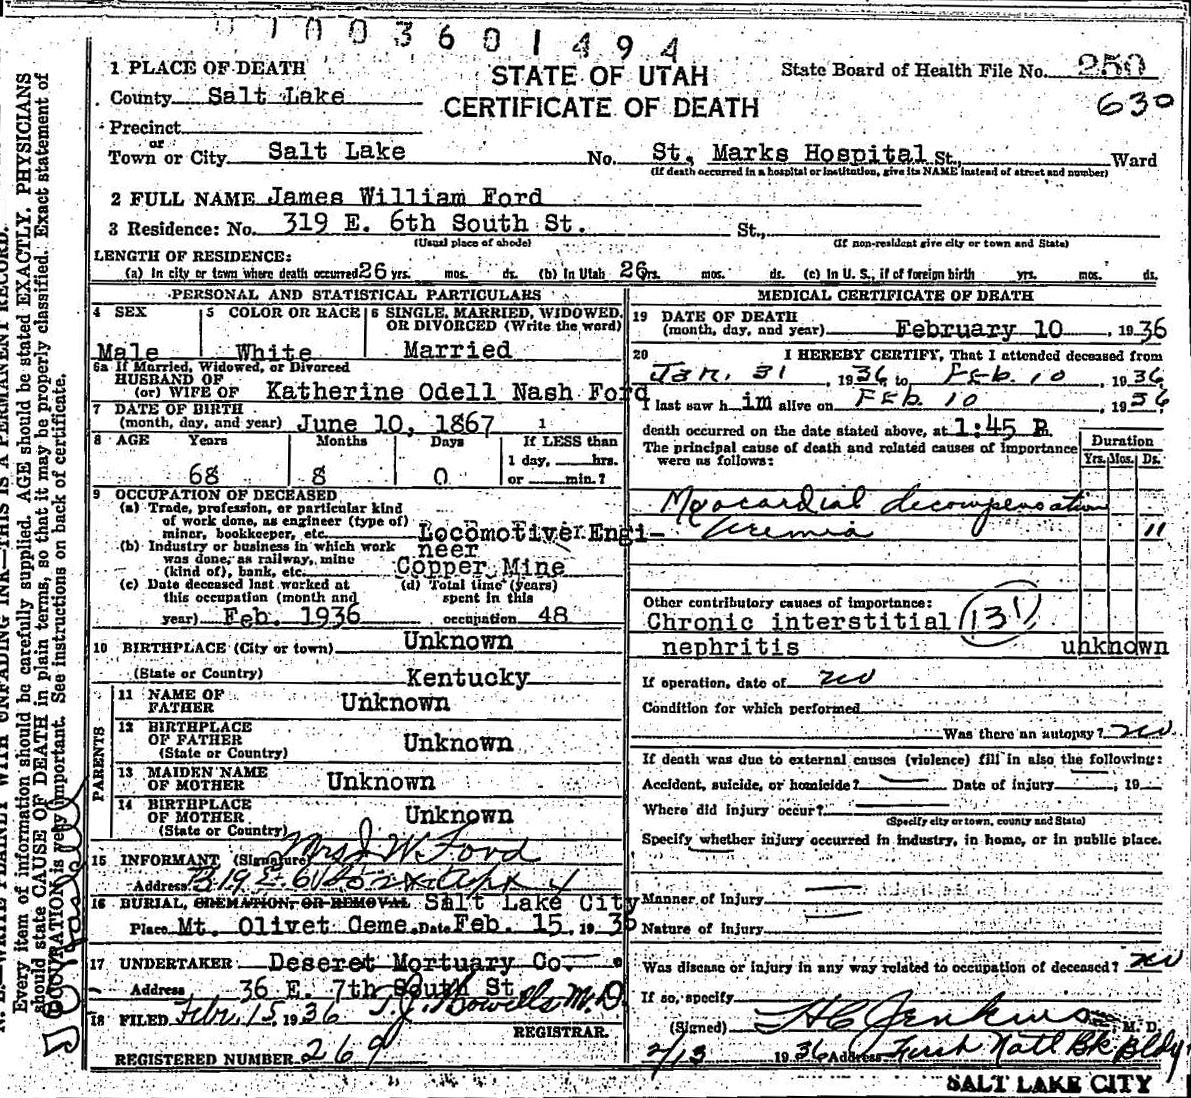 01003601494
1 PLACE OF DEATH
STATE OF UTAH
CERTIFICATE OF DEATH
State Board of Health File No. 250
630
County Salt Lake
Precinct
or
Town or City Salt Lake No. St. Marks Hospital St., Ward
(If death occurred in a hospital or institution, give its NAME instead of street and number)
2 FULL NAME James William Ford
3 Residence: No. 319 E. 6th South St. St.,
(Usual place of abode) (If non-resident give city or town and State)
LENGTH OF RESIDENCE:
(a) In city or town where death occurred 26 yrs. mos. ds. (b) In Utah 26 yrs. mos. ds. (c) In U. S., if of foreign birth yrs. mos. ds.
PERSONAL AND STATISTICAL PARTICULARS
4 SEX
Male
5 COLOR OR RACE
White
6 SINGLE, MARRIED, WIDOWED,
OR DIVORCED (Write the word)
Married
6a If Married, Widowed, or Divorced
HUSBAND OF
(or) WIFE OF Katherine Odell Nash Ford
7 DATE OF BIRTH
(month, day, and year) June 10, 1867 1
8 AGE Years Months Days If LESS than
1 day, hrs.
68 8 0 or min.?
9 OCCUPATION OF DECEASED
(a) Trade, profession, or particular kind
of work done, as engineer (type of)
miner, bookkeeper, etc. Locomotive Engi-
neer
(b) Industry or business in which work
was done, as railway, mine
(kind of), bank, etc. Copper Mine
(c) Date deceased last worked at
this occupation (month and
year) Feb. 1936
(d) Total time (years)
spent in this
occupation 48
10 BIRTHPLACE (City or town) Unknown
(State or Country) Kentucky
PARENTS
11 NAME OF
FATHER Unknown
12 BIRTHPLACE
OF FATHER Unknown
(State or Country)
13 MAIDEN NAME
OF MOTHER Unknown
14 BIRTHPLACE
OF MOTHER Unknown
(State or Country)
15 INFORMANT (Signature) Mrs J W. Ford
Address 319 E. 6th So
16 BURIAL, CREMATION, OR REMOVAL Salt Lake City
Place Mt. Olivet Ceme. Date Feb. 15, 1936
17 UNDERTAKER Deseret Mortuary Co.
Address 36 E. 7th South St
18 FILED Feb. 15 1936 T. J. Howells M.D.
REGISTRAR.
REGISTERED NUMBER 269
MEDICAL CERTIFICATE OF DEATH
19 DATE OF DEATH
(month, day, and year) February 10, 1936
20 I HEREBY CERTIFY, That I attended deceased from
Jan. 31, 1936 to Feb. 10, 1936
I last saw h im alive on Feb 10, 1936
death occurred on the date stated above, at 1:45 P.
The principal cause of death and related causes of importance
were as follows:
Duration
Yrs. Mos. Ds.
Myocardial decompensation
Uremia 11
Other contributory causes of importance:
Chronic interstitial 131
nephritis unknown
If operation, date of no
Condition for which performed
Was there an autopsy? no
If death was due to external causes (violence) fill in also the following:
Accident, suicide, or homicide? Date of injury , 19
Where did injury occur?
(Specify city or town, county and State)
Specify whether injury occurred in industry, in home, or in public place.
Manner of Injury
Nature of Injury
Was disease or injury in any way related to occupation of deceased? no
If so, specify
(Signed) H C Jenkins, M. D.
2/13 1936 Address First Natl Bk Bldg
SALT LAKE CITY
N. B.—WRITE PLAINLY WITH UNFADING INK—THIS IS A PERMANENT RECORD.
Every item of information should be carefully supplied. AGE should be stated EXACTLY. PHYSICIANS
should state CAUSE OF DEATH in plain terms, so that it may be properly classified. Exact statement of
OCCUPATION is very important. See instructions on back of certificate.